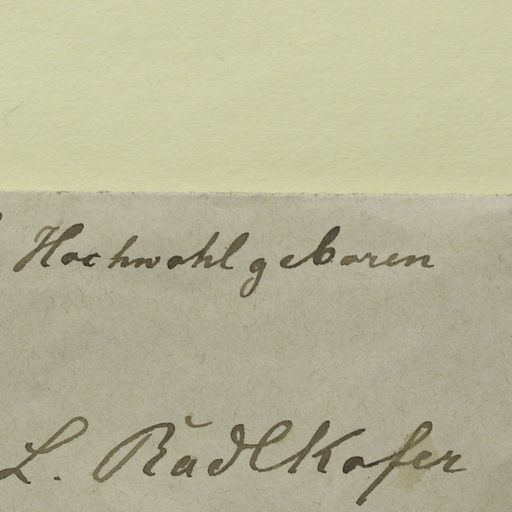 Hochwohlgeboren
L. Radlkofer